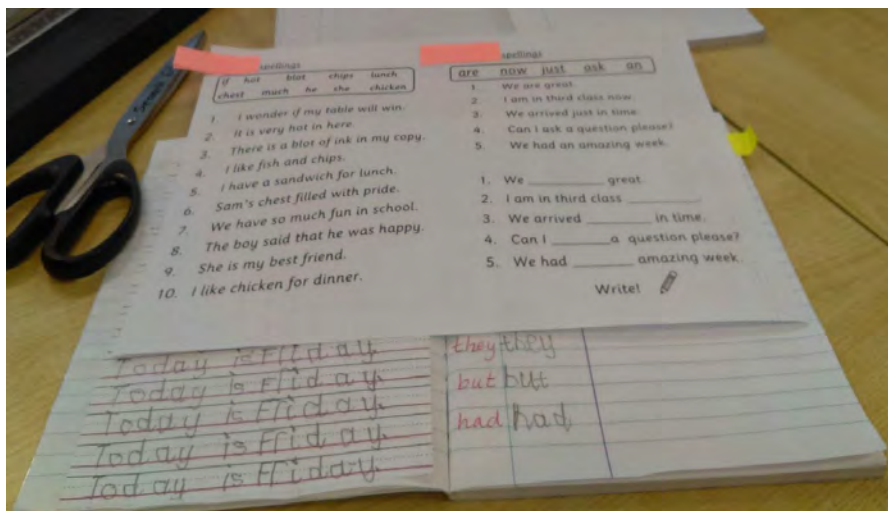 spellings
if hot blot chips lunch
chest much he she chicken
1. I wonder if my table will win.
2. It is very hot in here.
3. There is a blot of ink in my copy.
4. I like fish and chips.
5. I have a sandwich for lunch.
6. Sam's chest filled with pride.
7. We have so much fun in school.
8. The boy said that he was happy.
9. She is my best friend.
10. I like chicken for dinner.
spellings
are now just ask an
1. We are great.
2. I am in third class now.
3. We arrived just in time.
4. Can I ask a question please?
5. We had an amazing week.
1. We ________ great.
2. I am in third class ________.
3. We arrived ________ in time.
4. Can I ________ a question please?
5. We had ________ amazing week.
Write!
Today is Friday.
Today is Friday.
Today is Friday.
Today is Friday.
Today is Friday.
they they
but but
had had